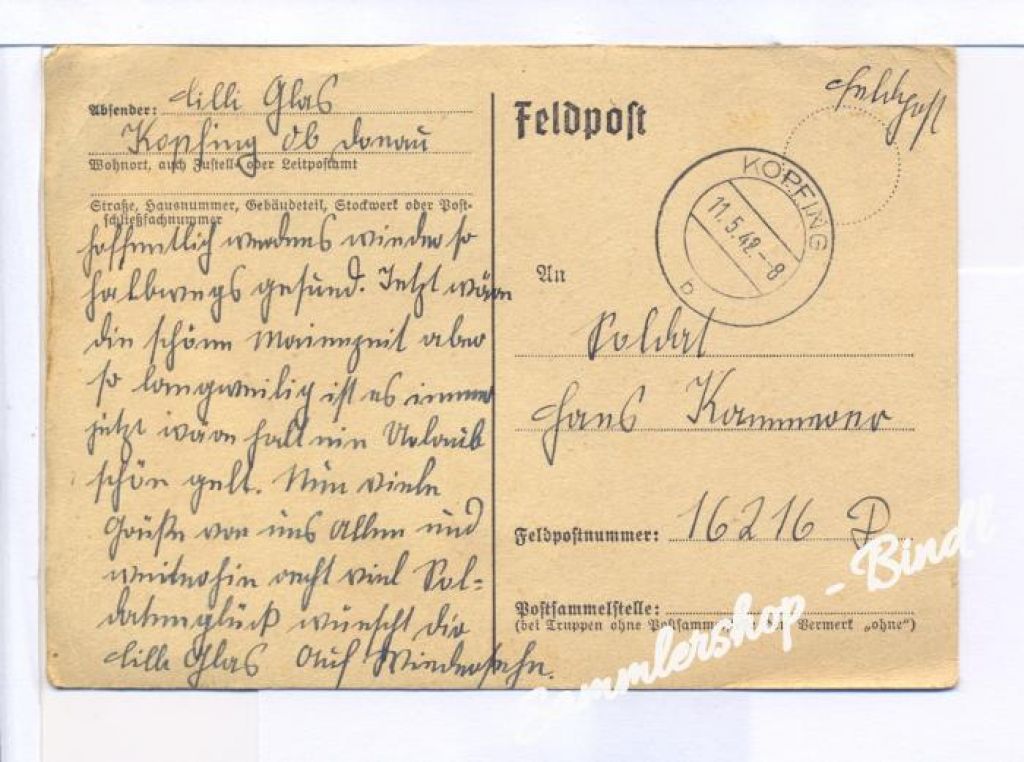 Absender: Cilli Glas
Kopfing Ob Donau
Wohnort, auch Zustell- oder Leitpostamt
Straße, Hausnummer, Gebäudeteil, Stockwerk oder Post-
schließfachnummer
hoffentlich werdens wieder so
halbwegs gesund. Jetzt wäre
die schöne Maienzeit aber
so langweilig ist es immer
jetzt wäre halt ein Urlaub
schön gelt. Nun viele
Grüße von uns Allen und
weiterhin recht viel Sol-
datenglück wünscht dir
Cilli Glas Auf Wiedersehn.
Feldpost
Feldpost
KOPFING
11.5.42.-8
b
An
Soldat
Hans Kammerer
Feldpostnummer: 16216 D
Postsammelstelle:
(bei Truppen ohne Postsammelstelle Vermerk „ohne“)
Sammlershop - Bindl